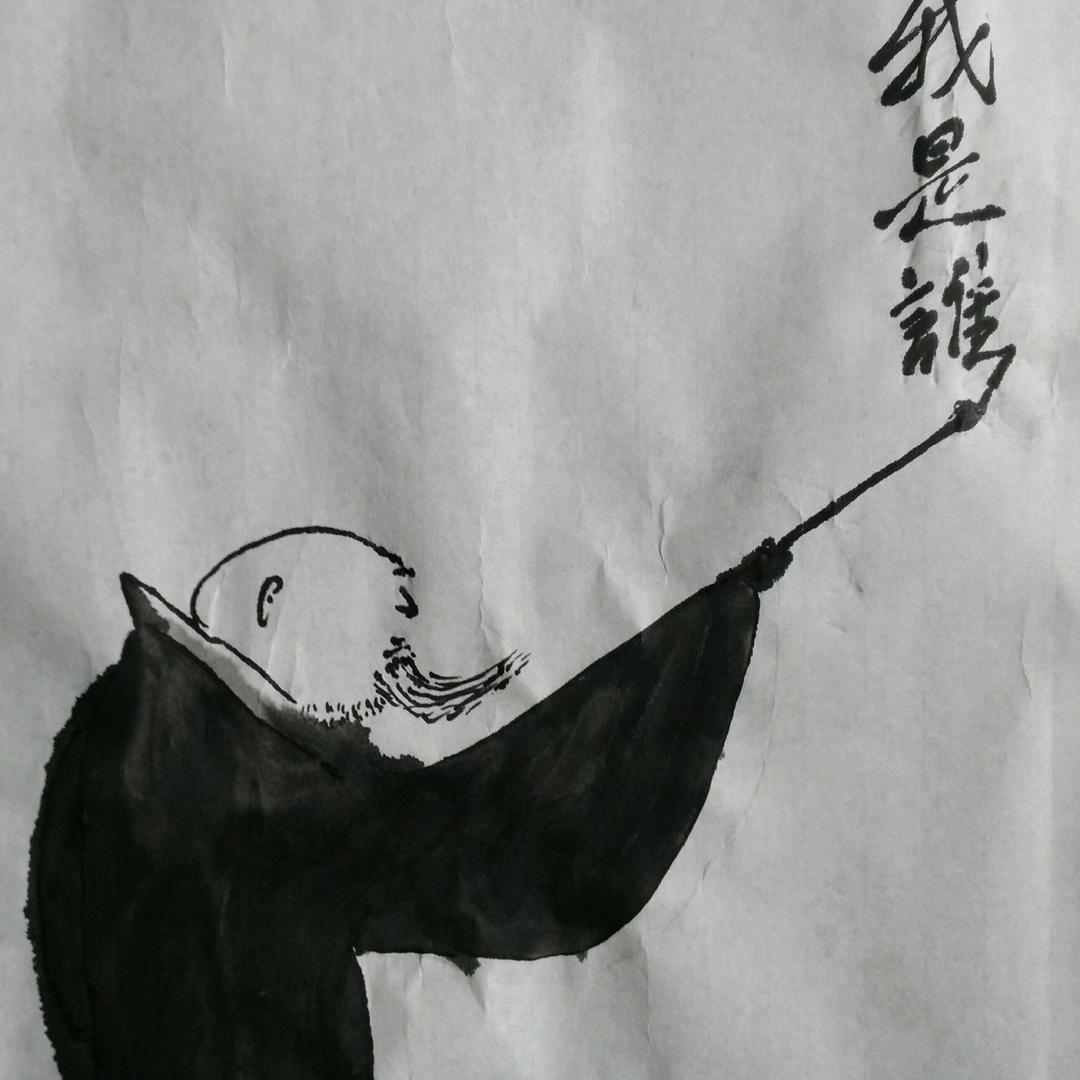 我是誰